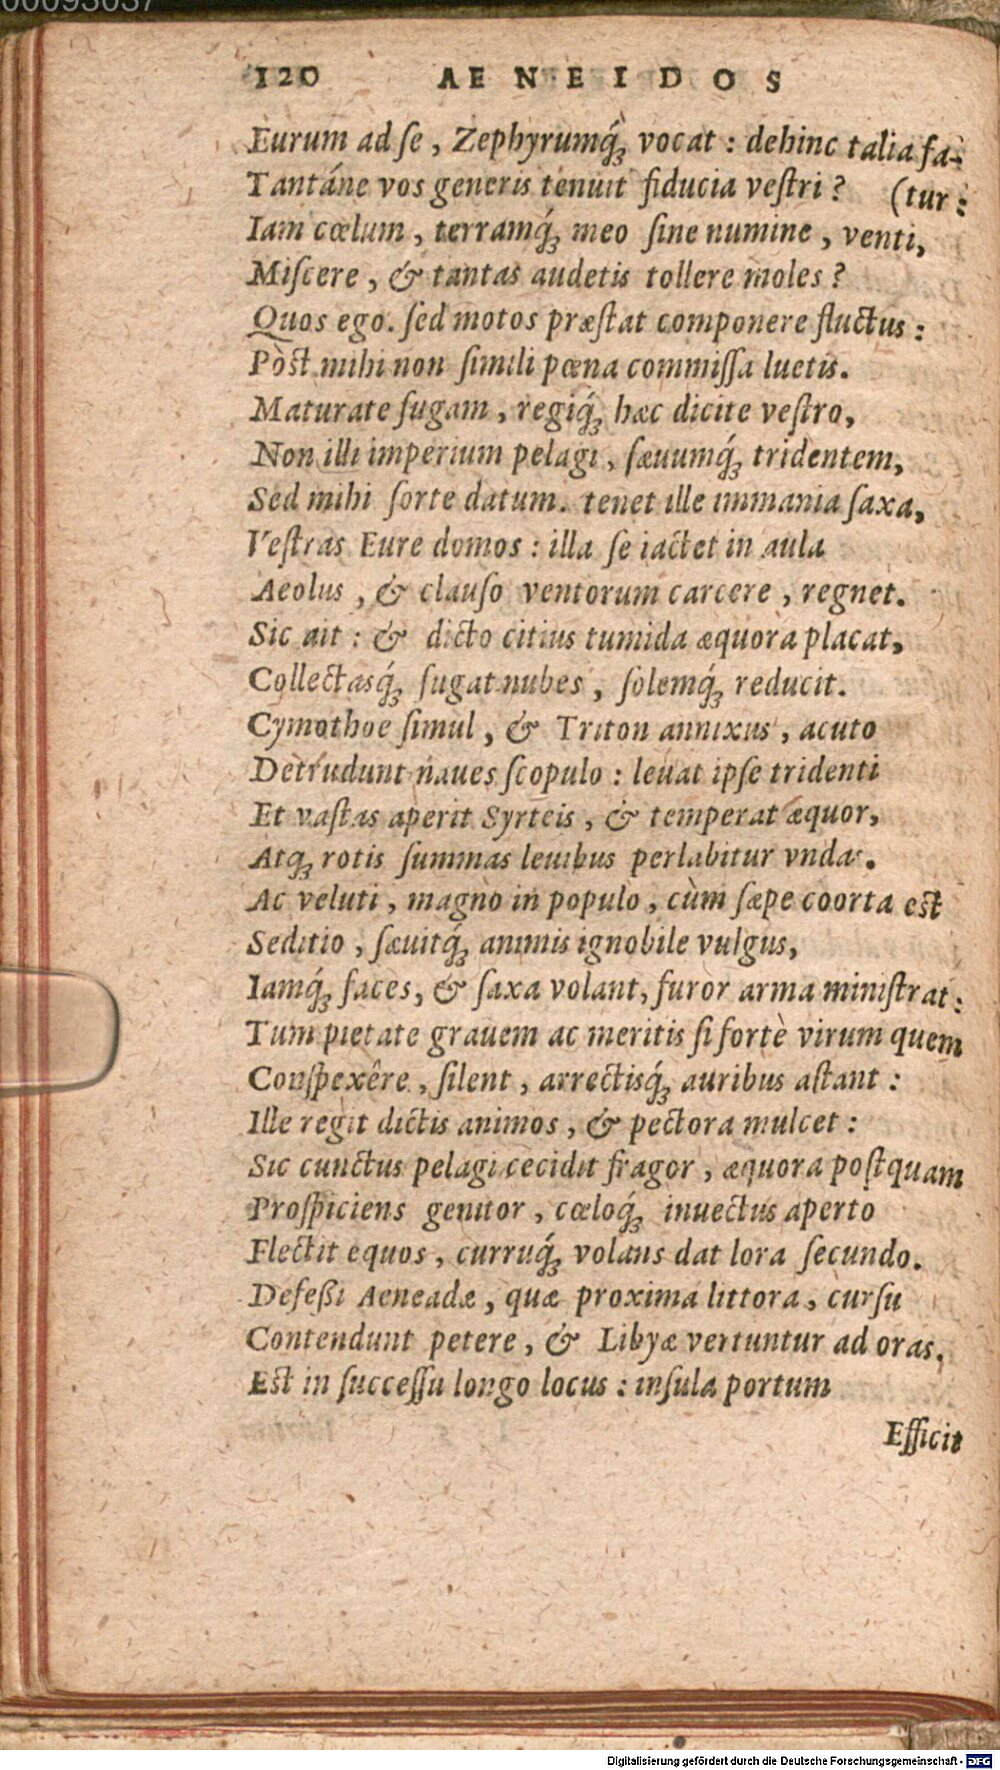 00093037
120 AENEIDOS
Eurum ad ſe, Zephyrumq́ꝫ vocat: dehinc talia fa-
Tantáne vos generis tenuit fiducia veſtri? (tur:
Iam cœlum, terramq́ꝫ meo ſine numine, venti,
Miſcere, & tantas audetis tollere moles?
Quos ego. ſed motos præſtat componere fluctus:
Pòſt mihi non ſimili pœna commiſſa luetis.
Maturate fugam, regiq́ꝫ hæc dicite veſtro,
Non illi imperium pelagi, ſæuumq́ꝫ tridentem,
Sed mihi ſorte datum. tenet ille immania ſaxa,
Veſtras Eure domos: illa ſe iactet in aula
Aeolus, & clauſo ventorum carcere, regnet.
Sic ait: & dicto citius tumida æquora placat,
Collectasq́ꝫ fugat nubes, ſolemq́ꝫ reducit.
Cymothoe ſimul, & Triton annixus, acuto
Detrudunt naues ſcopulo: leuat ipſe tridenti
Et vaſtas aperit Syrteis, & temperat æquor,
Atqꝫ rotis ſummas leuibus perlabitur vndas.
Ac veluti, magno in populo, cùm ſæpe coorta eſt
Seditio, ſæuitq́ꝫ animis ignobile vulgus,
Iamq́ꝫ faces, & ſaxa volant, furor arma miniſtrat:
Tum pietate grauem ac meritis ſi fortè virum quem
Conſpexêre, ſilent, arrectisq́ꝫ auribus aſtant:
Ille regit dictis animos, & pectora mulcet:
Sic cunctus pelagi cecidit fragor, æquora poſtquam
Proſpiciens genitor, cœloq́ꝫ inuectus aperto
Flectit equos, curruq́ꝫ volans dat lora ſecundo.
Defeßi Aeneadæ, quæ proxima littora, curſu
Contendunt petere, & Libyæ vertuntur ad oras.
Eſt in ſucceſſu longo locus: inſula portum
Efficit
Digitalisierung gefördert durch die Deutsche Forschungsgemeinschaft - DFG